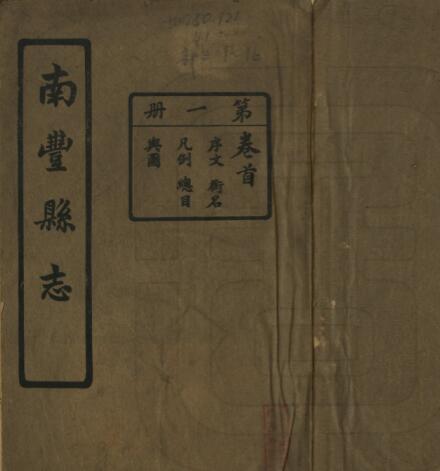 南豐縣志
第一册
卷首
序文 銜名
凡例 總目
輿圖